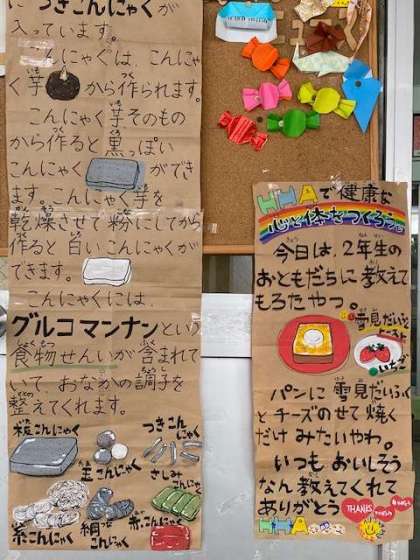 につきこんにゃくが
入っています。
こんにゃくは、こんにゃ
く芋 から作られます。
こんにゃく芋そのもの
から作ると黒っぽい
こんにゃく ができ
ます。こんにゃく芋を
乾燥させて粉にしてから
作ると白いこんにゃくが
できます。
こんにゃくには、
グルコマンナンという
食物せんいが含まれて
いて、おなかの調子を
整えてくれます。
板こんにゃく
玉こんにゃく
つきこんにゃく
さしみこんにゃく
糸こんにゃく
網こんにゃく
赤こんにゃく
HHAで健康な
心と体をつくろう。
今日は、2年生の
おともだちに教えて
もろたやつ。
雪見だいふくとーすと
いちご
パンに雪見だいふく
とチーズのせて焼く
だけみたいやわ。
いつもおいしそう
なん教えてくれて
ありがとう
THANKS
HHA